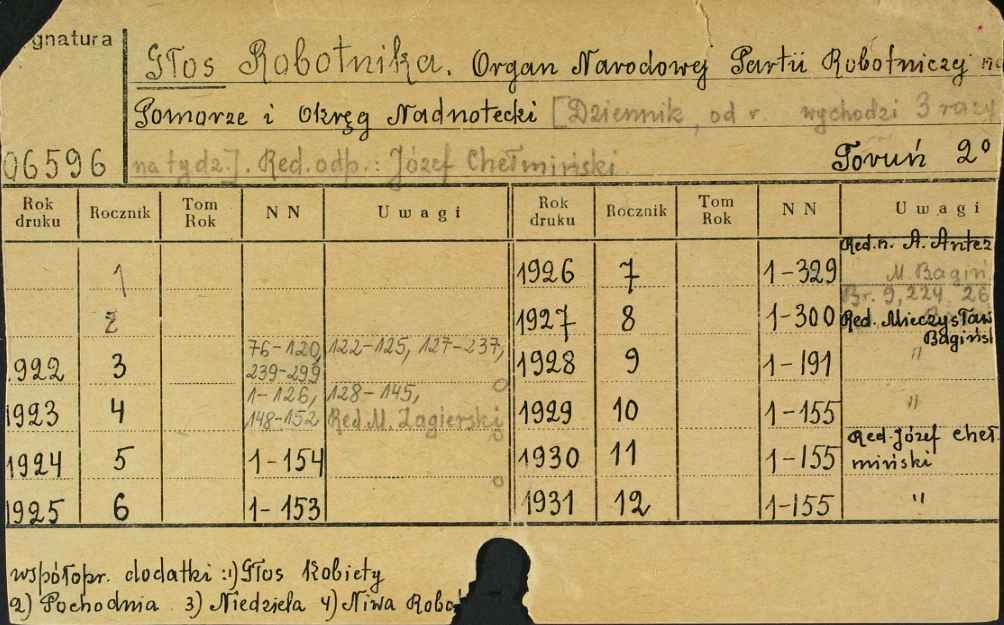 gnatura
Głos Robotnika. Organ Narodowej Partii Robotniczej na
Pomorze i Okręg Nadnotecki [Dziennik, od r. wychodzi 3 razy
06596 na tydz.]. Red. odp.: Józef Chełmiński Toruń 2°
Rok druku Rocznik Tom Rok NN Uwagi Rok druku Rocznik Tom Rok NN Uwagi
Red. n. A. Antcz
1 1926 7 1-329 M. Bagiń
Br. 9, 224, 26
2 1927 8 1-300 Red. Mieczysław
Bagińsk
76-120, 122-125, 127-237,
922 3 239-299 1928 9 1-191 "
1-126, 128-145,
1923 4 148-152 Red. M. Zagierski 1929 10 1-155 "
Red. Józef Cheł
1924 5 1-154 1930 11 1-155 miński
1925 6 1-153 1931 12 1-155 "
współopr. dodatki: 1) Głos Kobiety
2) Pochodnia 3) Niedziela 4) Niwa Robo